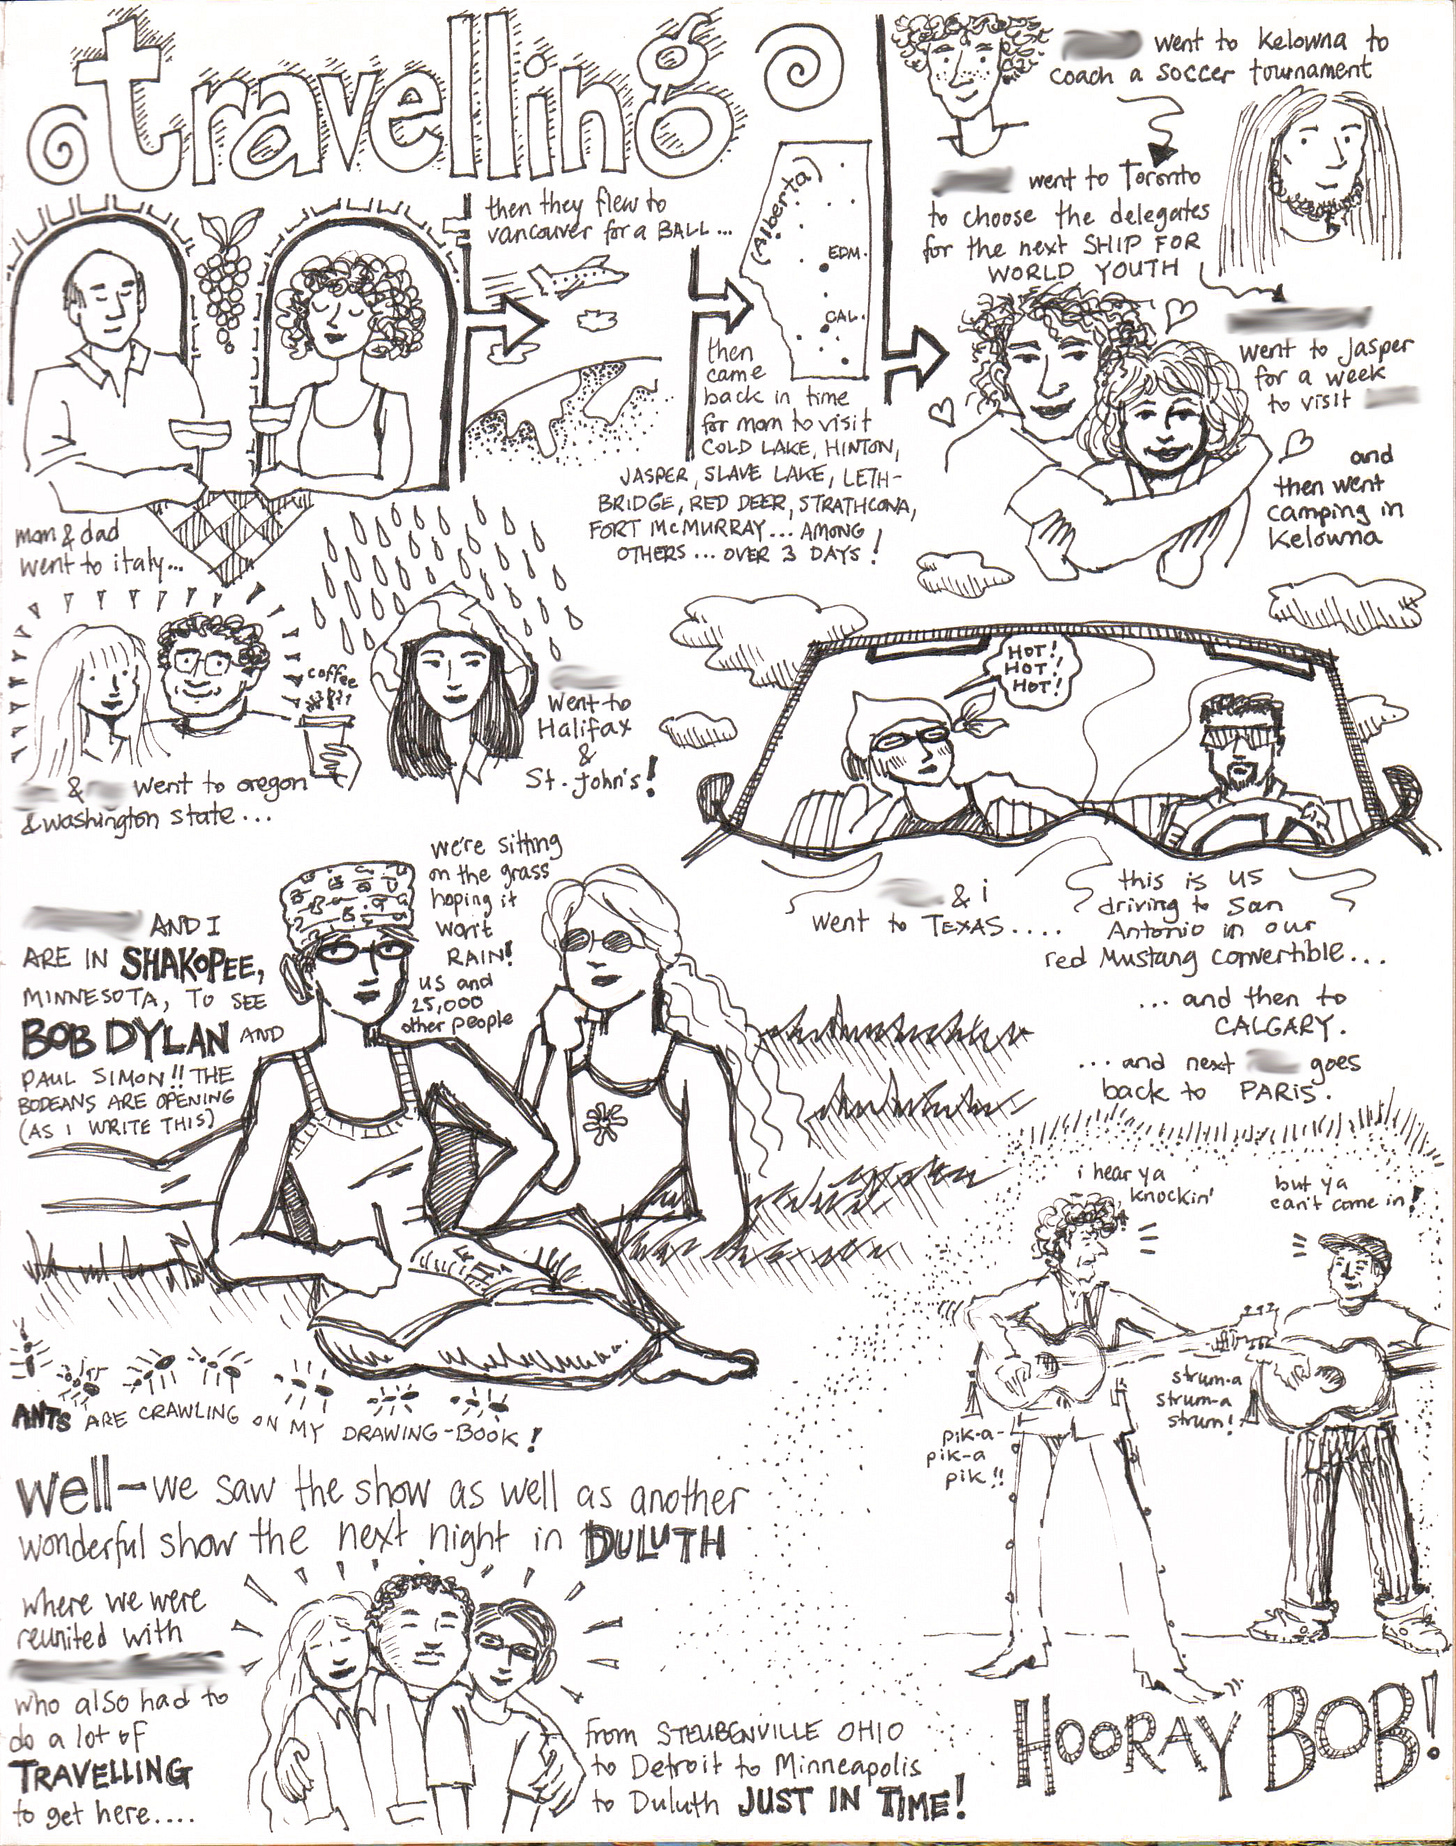 travelling
mom & dad
went to italy...
then they flew to
vancouver for a BALL...
(Alberta)
EDM.
CAL.
then
came
back in time
for mom to visit
COLD LAKE, HINTON,
JASPER, SLAVE LAKE, LETH-
BRIDGE, RED DEER, STRATHCONA,
FORT McMURRAY... AMONG
OTHERS... OVER 3 DAYS!
went to Kelowna to
coach a soccer tournament
went to Toronto
to choose the delegates
for the next SHIP FOR
WORLD YOUTH
went to Jasper
for a week
to visit
and
then went
camping in
Kelowna
& went to oregon
& washington state...
coffee
went to
Halifax
&
St. John's!
HOT!
HOT!
HOT!
& i
went to TEXAS....
this is us
driving to San
Antonio in our
red Mustang convertible...
...and then to
CALGARY.
...and next goes
back to PARIS.
AND I
ARE IN SHAKOPEE,
MINNESOTA, TO SEE
BOB DYLAN AND
PAUL SIMON!! THE
BODEANS ARE OPENING
(AS I WRITE THIS)
we're sitting
on the grass
hoping it
won't
RAIN!
us and
25,000
other people
ANTS ARE CRAWLING ON MY DRAWING-BOOK!
i hear ya
knockin'
but ya
can't come in!
pik-a-
pik-a
pik!!
strum-a
strum-a
strum!
well-we saw the show as well as another
wonderful show the next night in DULUTH
where we were
reunited with
who also had to
do a lot of
TRAVELLING
to get here....
from STEUBENVILLE OHIO
to Detroit to Minneapolis
to Duluth JUST IN TIME!
HOORAY BOB!